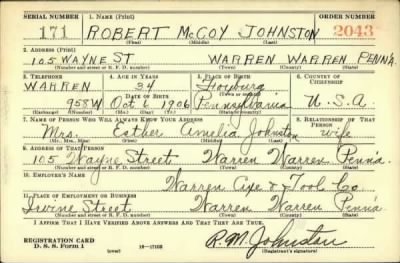 SERIAL NUMBER 1. NAME (Print) ORDER NUMBER
171 ROBERT McCOY JOHNSTON 2043
(First) (Middle) (Last)
2. ADDRESS (Print)
105 WAYNE ST WARREN WARREN PENNA
(Number and street or R. F. D. number) (Town) (County) (State)
3. TELEPHONE 4. AGE IN YEARS 5. PLACE OF BIRTH 6. COUNTRY OF CITIZENSHIP
WARREN 34
958W Oct 6 1906 Pennsylvania U.S.A.
7. NAME OF PERSON WHO WILL ALWAYS KNOW YOUR ADDRESS 8. RELATIONSHIP OF THAT PERSON
Mrs. Esther Amelia Johnston wife
(Mr., Mrs., Miss) (First) (Middle) (Last)
9. ADDRESS OF THAT PERSON
105 Wayne Street Warren Warren Penna
(Number and street or R. F. D. number) (Town) (County) (State)
10. EMPLOYER'S NAME
Warren Axe & Tool Co.
11. PLACE OF EMPLOYMENT OR BUSINESS
Irvine Street Warren Warren Penna
(Number and street or R. F. D. number) (Town) (County) (State)
I AFFIRM THAT I HAVE VERIFIED ABOVE ANSWERS AND THAT THEY ARE TRUE.
REGISTRATION CARD
D. S. S. Form 1 (over) R.M. Johnston
(Registrant's signature)